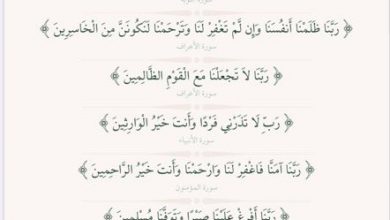 ﴿ رَبَّنَا ظَلَمْنَا أَنفُسَنَا وَإِن لَّمْ تَغْفِرْ لَنَا وَتَرْحَمْنَا لَنَكُونَنَّ مِنَ الْخَاسِرِينَ ﴾
سورة الأعراف
﴿ رَبَّنَا لاَ تَجْعَلْنَا مَعَ الْقَوْمِ الظَّالِمِينَ ﴾
سورة الأعراف
﴿ رَبِّ لَا تَذَرْنِي فَرْدًا وَأَنتَ خَيْرُ الْوَارِثِينَ ﴾
سورة الأنبياء
﴿ رَبَّنَا آمَنَّا فَاغْفِرْ لَنَا وَارْحَمْنَا وَأَنتَ خَيْرُ الرَّاحِمِينَ ﴾
سورة المؤمنون
﴿ رَبَّنَا أَفْرِغْ عَلَيْنَا صَبْرًا وَتَوَفَّنَا مُسْلِمِينَ ﴾